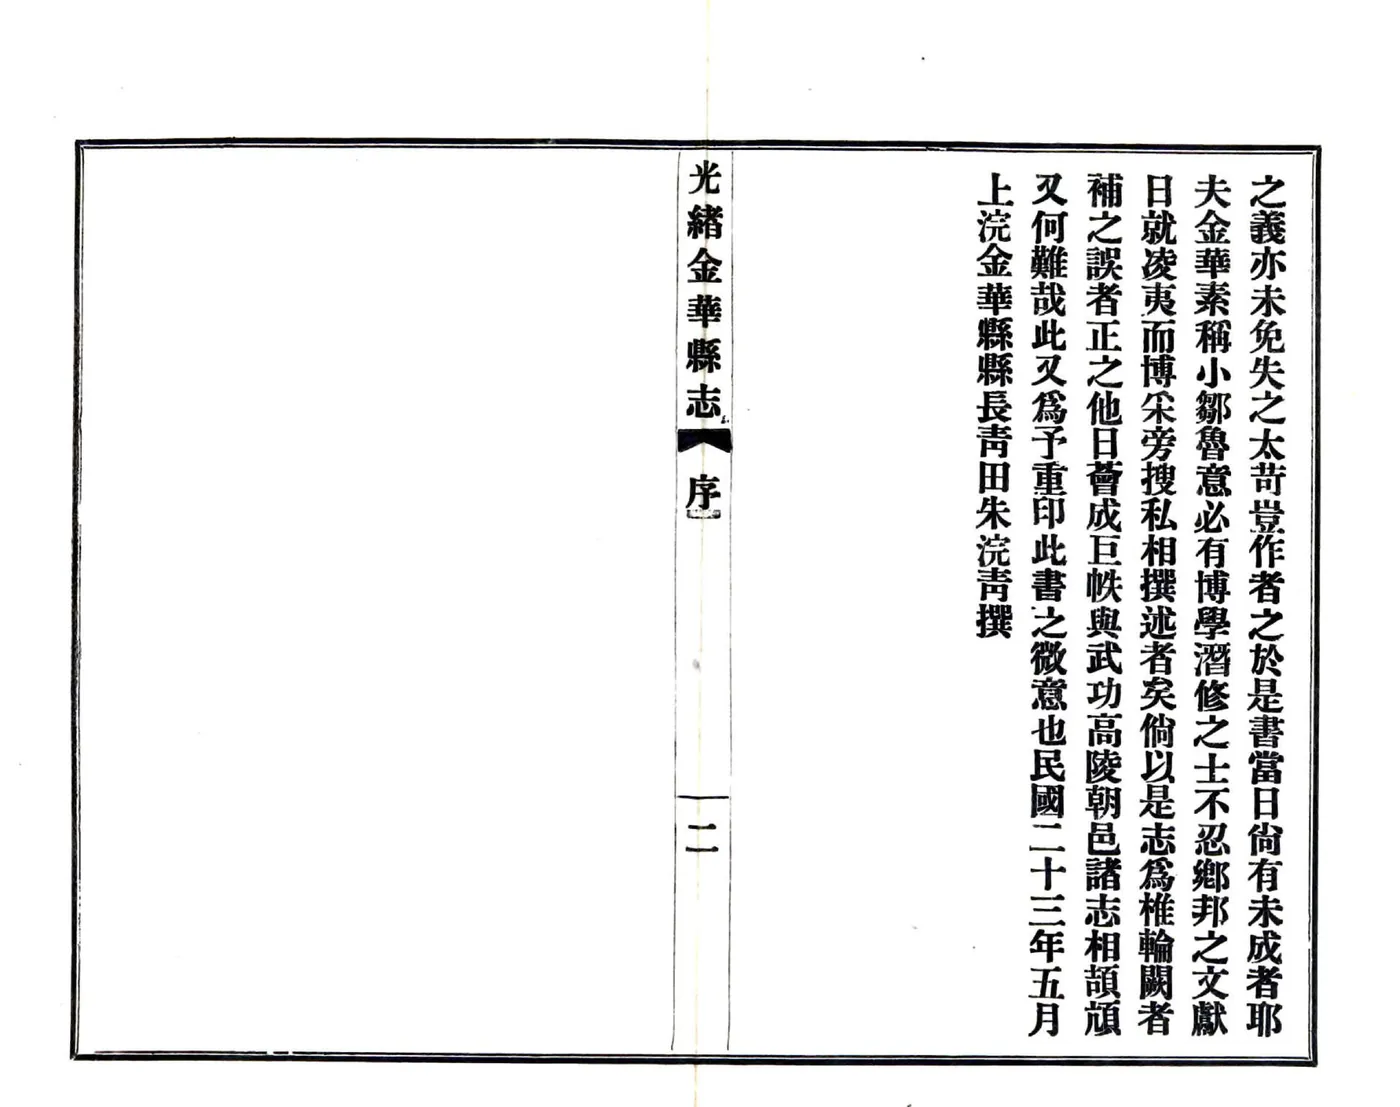 之義亦未免失之太苛豈作者之於是書當日尙有未成者耶
夫金華素稱小鄒魯意必有博學潛修之士不忍鄕邦之文獻
日就凌夷而博采旁搜私相撰述者矣倘以是志爲椎輪闕者
補之誤者正之他日薈成巨帙與武功高陵朝邑諸志相頡頏
又何難哉此又爲予重印此書之微意也民國二十三年五月
上浣金華縣縣長靑田朱浣靑撰
光緒金華縣志
序
二